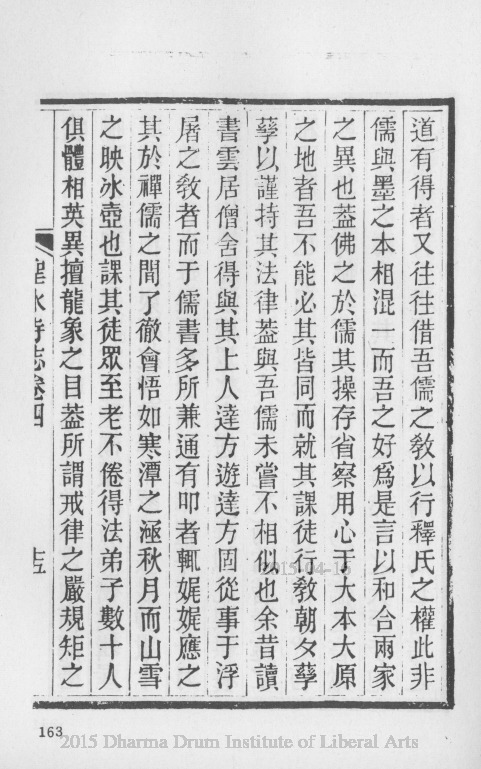 道有得者又往往借吾儒之敎以行釋氏之權此非
儒與墨之本相混一而吾之好爲是言以和合兩家
之異也葢佛之於儒其操存省察用心于大本大原
之地者吾不能必其皆同而就其課徒行敎朝夕孳
孳以謹持其法律葢與吾儒未嘗不相似也余昔讀
書雲居僧舍得與其上人達方遊達方固從事于浮
屠之敎者而于儒書多所兼通有叩者輒娓娓應之
其於禪儒之間了徹會悟如寒潭之涵秋月而山雪
之映冰壺也課其徒眾至老不倦得法弟子數十人
俱體相英異擅龍象之目葢所謂戒律之嚴規矩之
聖水寺志卷四
十五
163
2015-04-15
2015 Dharma Drum Institute of Liberal Arts